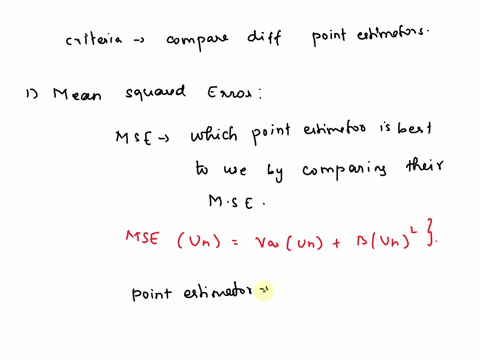 criteria → compare diff point estimators.
1) Mean squared Error:
MSE → which point estimator is best
to we by comparing their
M.SE.
MSE (Un) = Var (Un) + B(Un)² }.
point estimator →